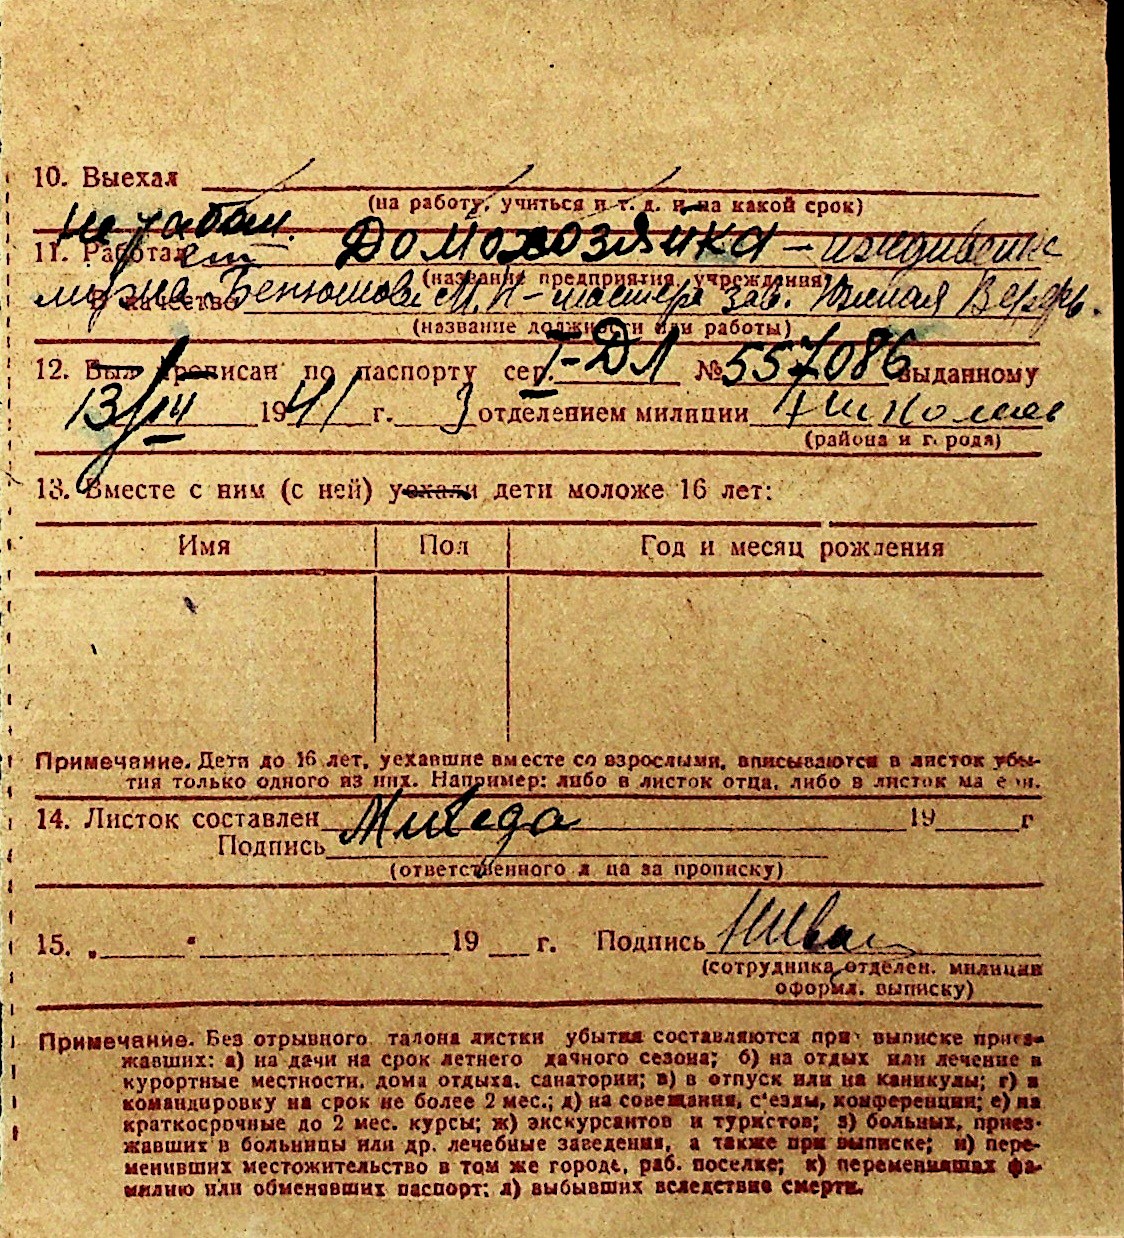 10. Выехал
(на работу, учиться и т. д. и на какой срок)
не работает
11. Работал Домохозяйка – иждивение
(название предприятия, учреждения)
мужа М. И – мастера зав. Южная Верфь.
в качестве
(название должности или работы)
12. Был прописан по паспорту сер. I-ДЛ № 557086 выданному
13/III 1941 г. 3 отделением милиции г Николаев
(района и города)
13. Вместе с ним (с ней) уехали дети моложе 16 лет:
Имя Пол Год и месяц рождения
Примечание. Дети до 16 лет, уехавшие вместе со взрослыми, вписываются в листок убы-
тия только одного из них. Например: либо в листок отца, либо в листок ма е и.
14. Листок составлен 19 г
Подпись
(ответственного л ца за прописку)
15. „ " 19 г. Подпись
(сотрудника отделен. милиции
оформл. выписку)
Примечание. Без отрывного талона листки убытия составляются при выписке приез-
жавших: а) на дачи на срок летнего дачного сезона; б) на отдых или лечение в
курортные местности, дома отдыха, санатории; в) в отпуск или на каникулы; г) в
командировку на срок не более 2 мес.; д) на совещания, с'езды, конференции; е) на
краткосрочные до 2 мес. курсы; ж) экскурсантов и туристов; з) больных, приез-
жавших в больницы или др. лечебные заведения, а также при выписке; и) пере-
менивших местожительство в том же городе, раб. поселке; к) переменивших фа-
милию или обменявших паспорт; л) выбывших вследствие смерти.